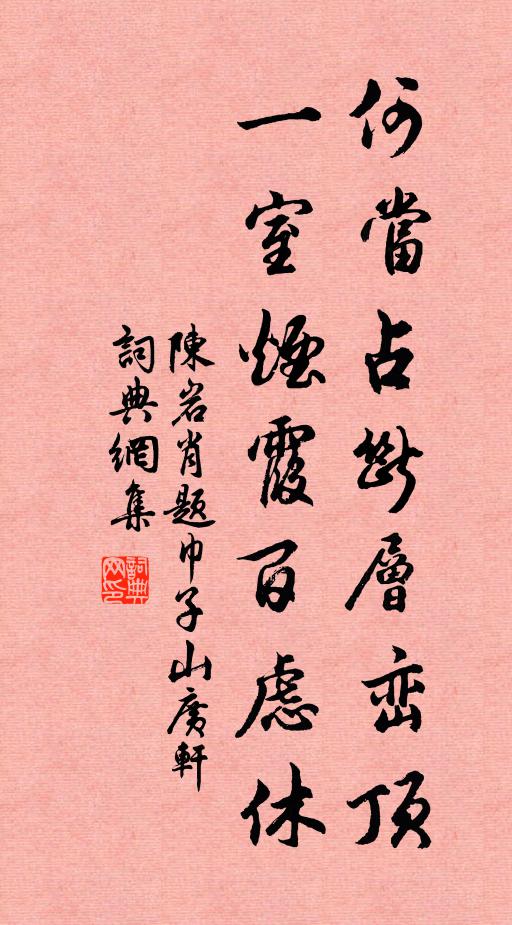 何當占斷層峦頂
一室煙霞百慮休
陳岩肖題巾子山廣軒
詞典網集
詞典網印